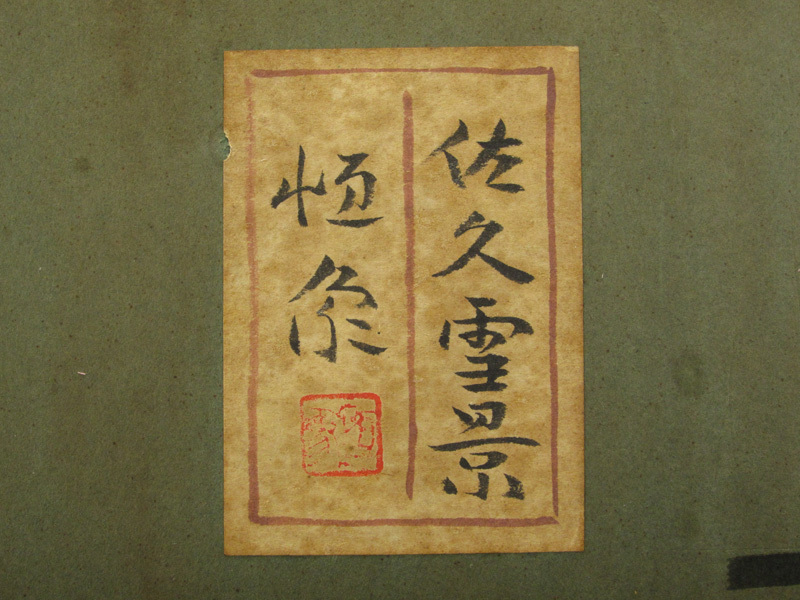 佐久雪景
恒